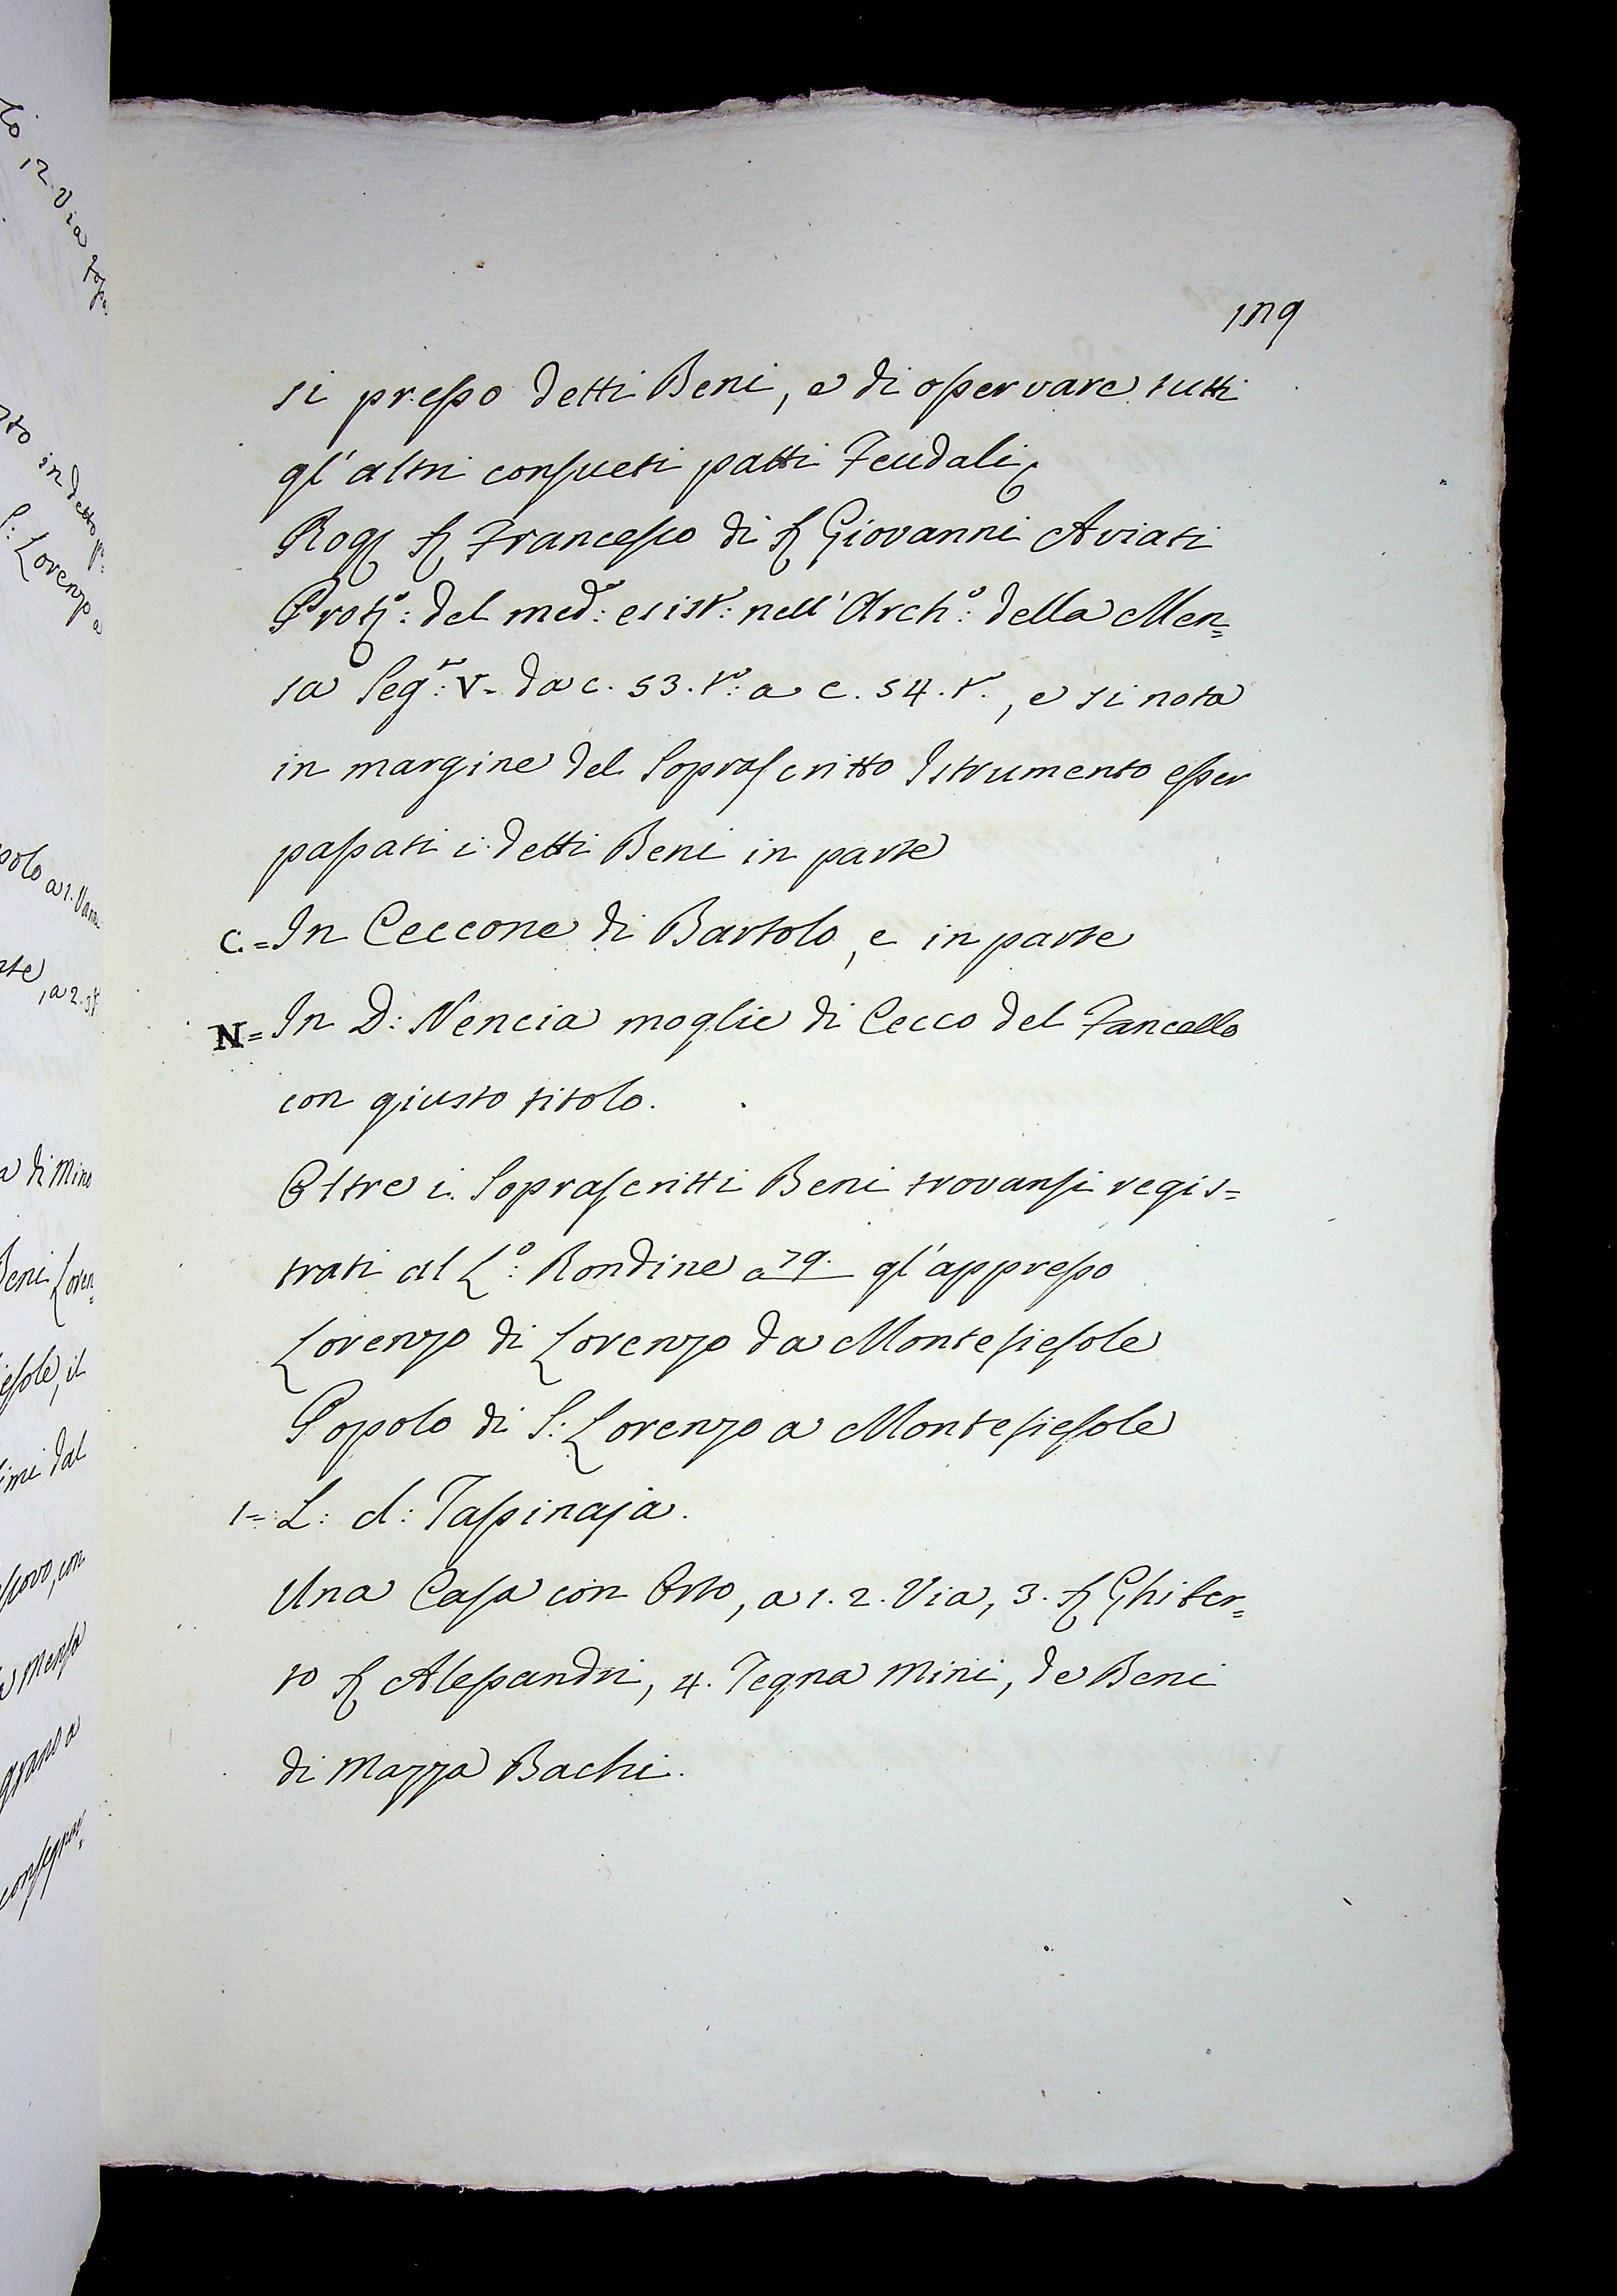 si presso detti Beni, e di osservare tutti
gl'altri consueti patti Feudali
Rog. S. Francesco di S. Giovanni Aviati
Prot.º: del med.º: esist.: nell'Arch.º: della Men=
sa Seg.º: V= da c. 53. t.º: a c. 54. t.º, e si nota
in margine del Soprascritto Istrumento esser
passati i detti Beni in parte
C.= In Ceccone di Bartolo, e in parte
N= In D: Nencia moglie di Cecco del Fancello
con giusto titolo.
Oltre i Soprascritti Beni trovansi regis=
trati al L.º: Rondine a 79. gl'appresso
Lorenzo di Lorenzo da Montefiesole
Popolo di S: Lorenzo a Montefiesole
1= L: d: Tassinaja.
Una Casa con Orto, a 1. 2. Via, 3. S. Ghiber=
to S. Alessandri, 4. Tegna Mini, de Beni
di Mazza Bachi.